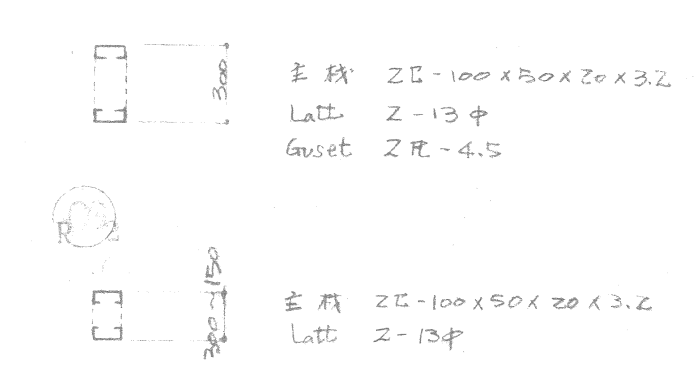 300
主材 2C-100×50×20×3.2
Latt 2-13φ
Guset 2PL-4.5
300~150
主材 2C-100×50×20×3.2
Latt 2-13φ